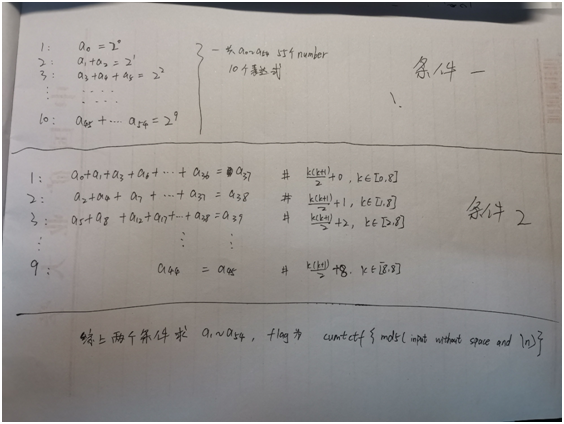 1: a₀ = 2⁰
2: a₁+a₂ = 2¹
3: a₃+a₄+a₅ = 2²
⋮ ⋯⋯
10: a₄₅ + … a₅₄ = 2⁹
一共 a₀~a₅₄ 55个 number
10个表达式
条件一
1: a₀+a₁+a₃+a₆+ … + a₃₆ = a₃₇ # k(k+1)/2+0, k∈[0,8]
2: a₂+a₄+ a₇ + … + a₃₇ = a₃₈ # k(k+1)/2+1, k∈[1,8]
3: a₅+a₈ +a₁₂+a₁₇+…+a₃₈ = a₃₉ # k(k+1)/2+2, k∈[2,8]
⋮ ⋮ ⋮
9: a₄₄ = a₄₅ # k(k+1)/2+8, k∈[8,8]
条件2
综上两个条件求 a₁~a₅₄, flag为 cumtctf{md5(input without space and \n)}